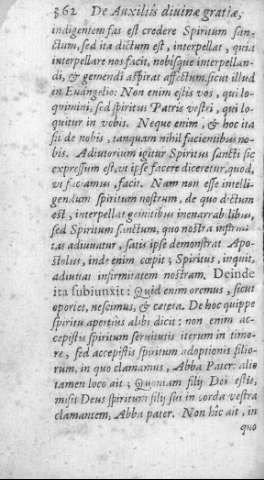 362 De Auxiliis divinæ gratiæ,
indigentem fas est credere Spiritum san-
ctum, sed ita dictum est, interpellat, quia
interpellare nos facit, nobisque interpellan-
di, & gemendi aspirat affectum, sicut illud
in Euangelio: Non enim estis vos, qui lo-
quimini, sed spiritus Patris vestri, qui lo-
quitur in vobis. Neque enim, & hoc ita
fit de nobis, tanquam nihil facientibus no-
bis. Adiutorium igitur Spiritus sancti sic
expressum est, vt ipse facere diceretur, quod,
vt faciamus, facit. Nam non esse intelli-
gendum spiritum nostrum, de quo dictum
est, interpellat gemitibus inenarrabilibus,
sed Spiritum sanctum, quo nostra infirmi-
tas adiuuatur, satis ipse demonstrat Apo-
stolus, inde enim cœpit; Spiritus, inquit,
adiuuat infirmitatem nostram. Deinde
ita subiunxit: Quid enim oremus, sicut
oportet, nescimus, & cætera. De hoc quippe
spiritu apertius alibi dicit: non enim ac-
cepistis spiritum seruitutis iterum in timo-
re, sed accepistis spiritum adoptionis filio-
rum, in quo clamamus, Abba Pater: alio
tamen loco ait; Quoniam filij Dei estis,
misit Deus spiritum filij sui in corda vestra
clamantem, Abba pater. Non hîc ait, in
quo